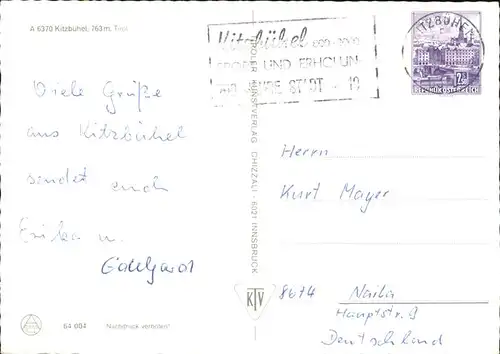 A 6370 Kitzbühel, 763 m, Tirol
Viele Grüße
aus Kitzbühel
sendet euch
Erika u.
Gotthard
64 004
Nachdruck verboten
TIROLER KUNSTVERLAG CHIZZALI · 6021 INNSBRUCK
KTV
Kitzbühel
800 - 2000
SPORT UND ERHOLUN
STADT
KITZBÜHEL
REPUBLIK ÖSTERREICH
Herrn
Kurt Mayer
8674 Naila
Hauptstr. 9
Deutschland